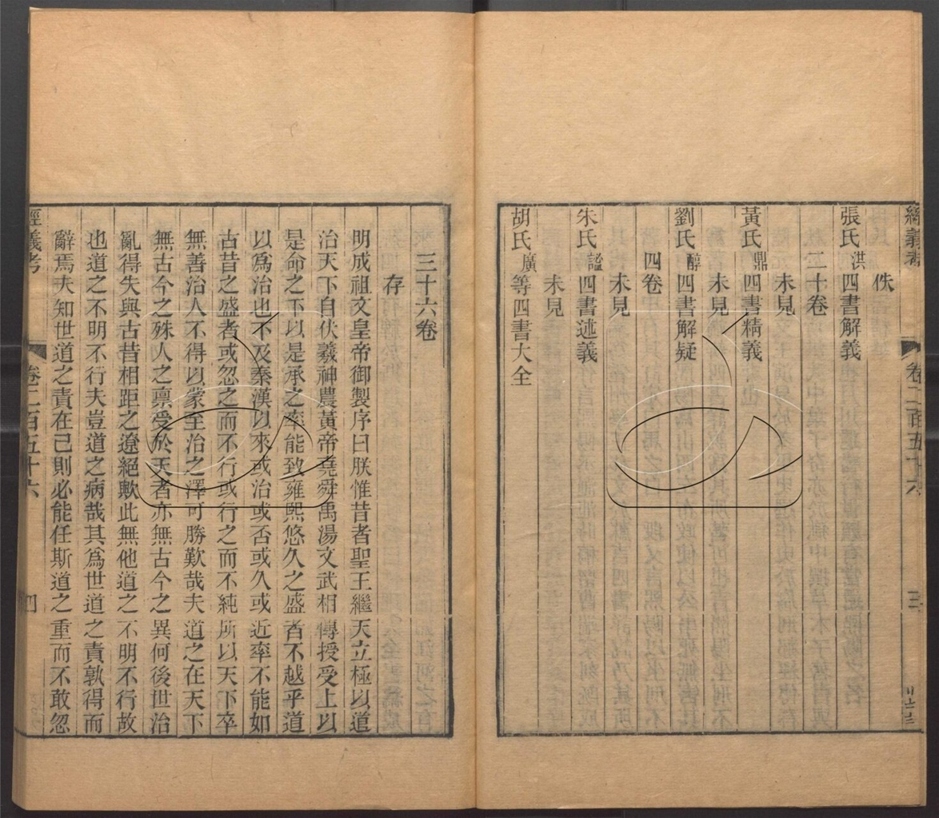 經義考 卷二百五十六 三
佚
張氏洪四書解義
二十卷
未見
黃氏鼎四書精義
未見
劉氏醇四書解疑
四卷
未見
朱氏謐四書述義
未見
胡氏廣等四書大全
三十六卷
存
明成祖文皇帝御製序曰朕惟昔者聖王繼天立極以道
治天下自伏羲神農黃帝堯舜禹湯文武相傳授受上以
是命之下以是承之率能致雍熙悠久之盛者不越乎道
以爲治也下及秦漢以來或治或否或久或近率不能如
古昔之盛者或忽之而不行或行之而不純所以天下卒
無善治人不得以蒙至治之澤可勝歎哉夫道之在天下
無古今之殊人之稟受於天者亦無古今之異何後世治
亂得失與古昔相距之遼絕歟此無他道之不明不行故
也道之不明不行夫豈道之病哉其爲世道之責孰得而
辭焉夫知世道之責在己則必能任斯道之重而不敢忽
經義考 卷二百五十六 四